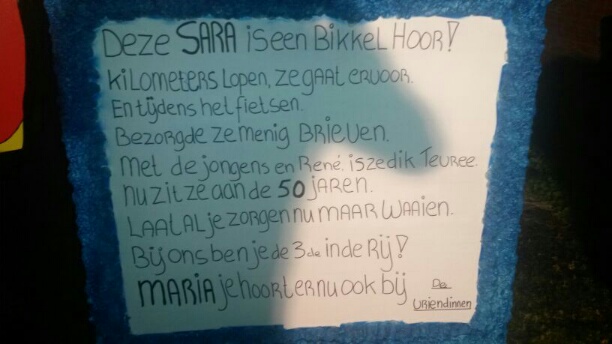 Deze SARA is een Bikkel Hoor!
Kilometers lopen, ze gaat ervoor.
En tijdens het fietsen.
Bezorgde ze menig Brieven.
Met de jongens en René, is ze dik Teuree.
nu zit ze aan de 50 jaren.
Laat al je zorgen nu maar waaien.
Bij ons ben je de 3de in de Rij!
MARIA je hoort er nu ook bij
De
Vriendinnen